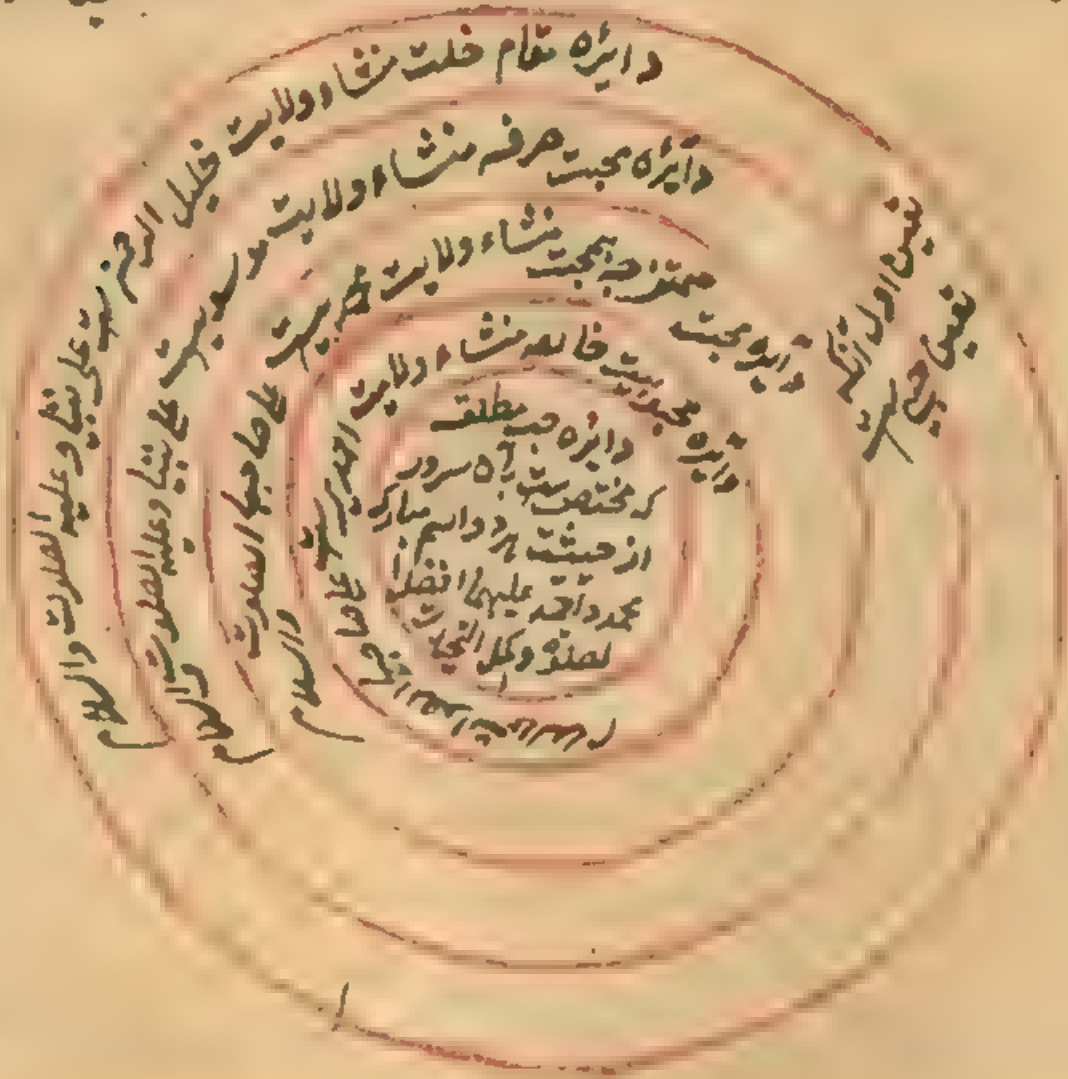 دایرهٔ مقام خلت منشاء ولایت خلیل الرحمن علی نبینا و علیه الصلوت والسلام
دایرهٔ محبت صرفه منشاء ولایت موسویت علی نبینا و علیه الصلوت والسلام
دایره محبت ممتزجه بمحبت منشاء ولایت محمدیت علی صاحبها الصلوت والسلام
دایره محبوبیت خالصه منشاء ولایت احمدیت علی صاحبها
دایره حب مطلق
که مختص ست بآن سرور
از حیثیت هر دو اسم مبارک
محمد و احمد علیهما افضل ا
لصلوة و اکمل التحیات
تعین اول
تعین حبی